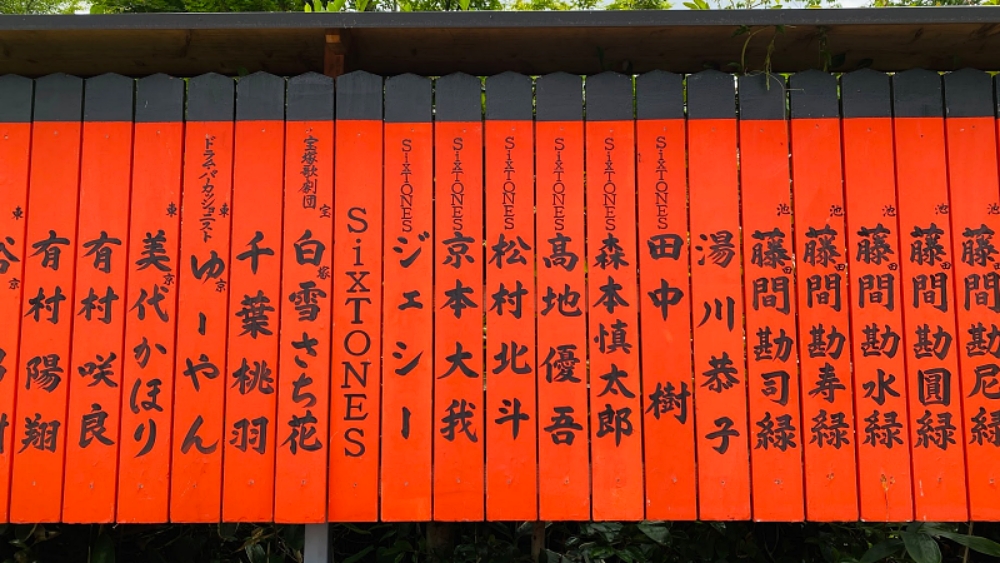 東京
有村陽翔
有村咲良
東京
美代かほり
ドラム・パーカッショニスト
東京
ゆーやん
千葉桃羽
宝塚歌劇団
宝塚
白雪さち花
SixTONES
SixTONES
ジェシー
SixTONES
京本大我
SixTONES
松村北斗
SixTONES
髙地優吾
SixTONES
森本慎太郎
SixTONES
田中樹
湯川恭子
池田
藤間勘司緑
池田
藤間勘寿緑
池田
藤間勘水緑
池田
藤間勘圓緑
池田
藤間勘尼緑